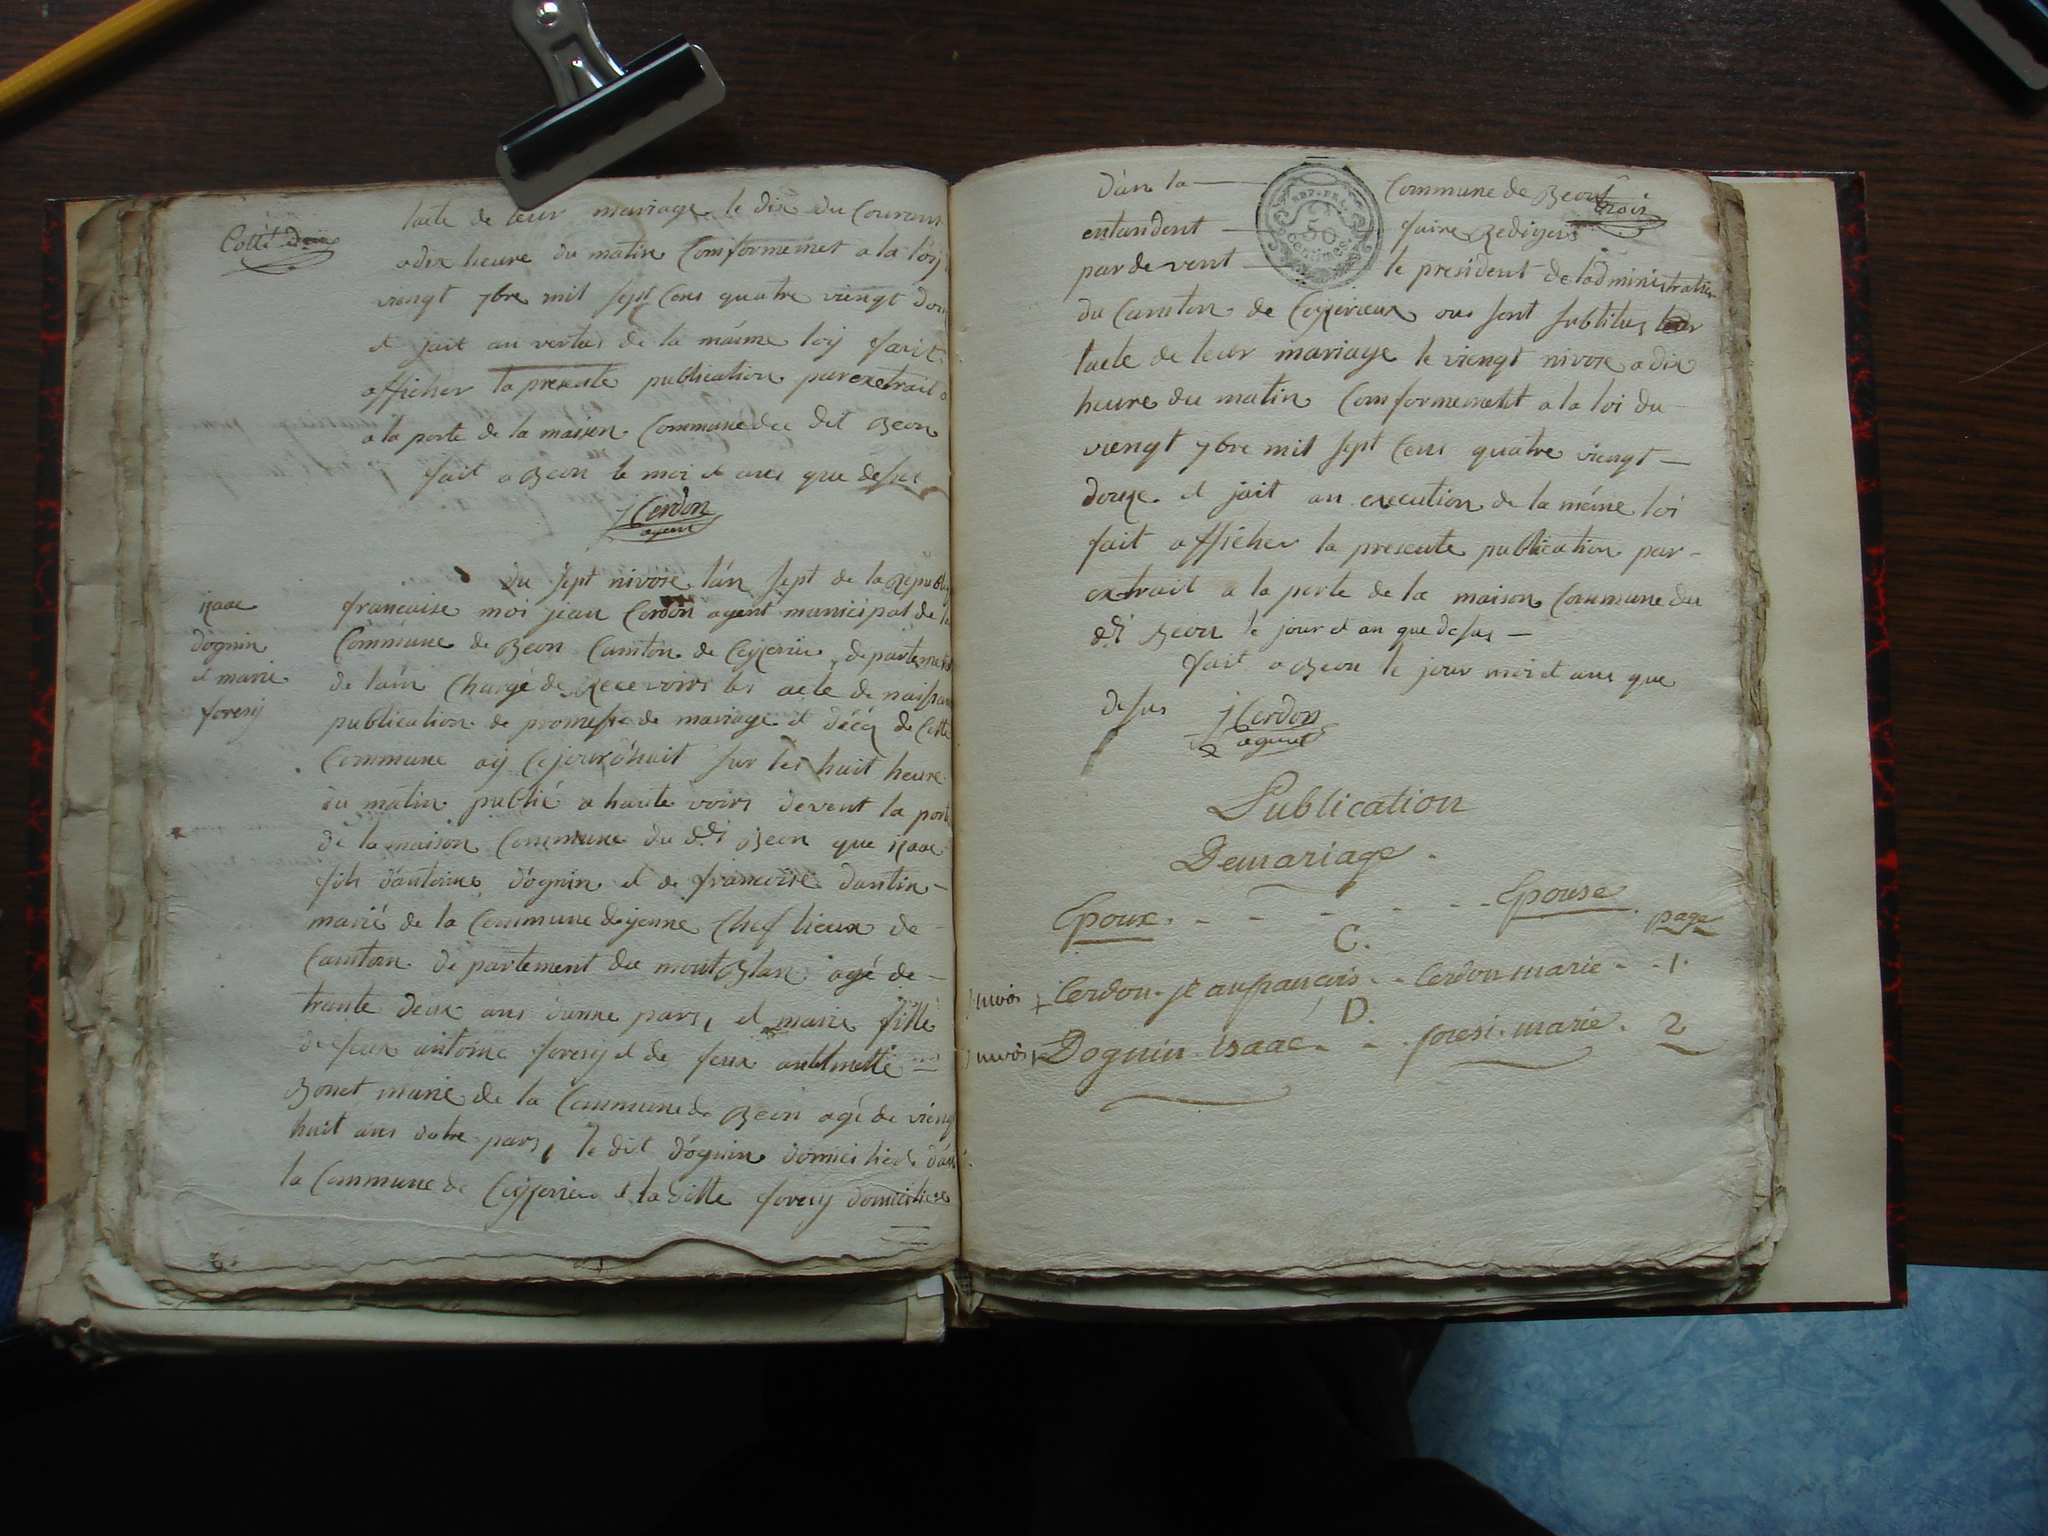 Cotté deux
lacte de leur mariage le dix du Courant
a dix heure du matin Comformemet a la loij
viengt 7bre mil sept Cens quatre viengt dou
et jait au vertus de la maime loij fait
afficher la presente publication par extrait
a la porte de la maison Commune du dit Beon
fait a Beon le moi et ans que desus
j Cerdon
agent
du sept nivose lan sept de la Republi
isaac
dognin
et marie
foresij
francaise moi jean Cerdon agent municipal de la
Commune de Beon Canton de Ceijerieu departement
de lain Chargé de Recevoirs les acte de naissan
publication de promesse de mariage et décé de Cette
Commune aij Cejourdhuit sur les huit heure
du matin publié a haute voirs devent la port
de la maison Commune du dt Beon que isaac
fils dantoine dognin et de francoise dantin
marié de la Commune de yenne Chef lieux de
Canton departement du mont Blan agé de
trante deux ans dunne pars, et marie fille
de feux antoine foresij et de feux
Bonet marié de la Commune de Beon agé de vieng
huit ans dotre pars, le dit dognin domicilies dans
la Commune de Ceijerieu et la ditte foresij domiciliee
trois
dan la Commune de Beon
REP. FRA.
50
centimes
entandent faire Rediger
par de vent le president de ladministration
du Canton de Ceijerieux ou sont subtitus
lacte de leur mariage le viengt nivose a dix
heure du matin Comformement a la loi du
viengt 7bre mil sept Cens quatre viengt
douze et jait an execution de la méme loi
fait afficher la presente publication par
extrait a la porte de la maison Commune du
dt Beon le jour et an que desus
fait a Beon le jour moi et ans que
desus j Cerdon
agent
Publication
De mariage.
Epoux. - - - - - - Epouse.
page
C.
nivôs + Cerdon jean françois - - Cerdon marie - - 1.
D.
nivôs + Dognin isaac - - foresi marie. 2